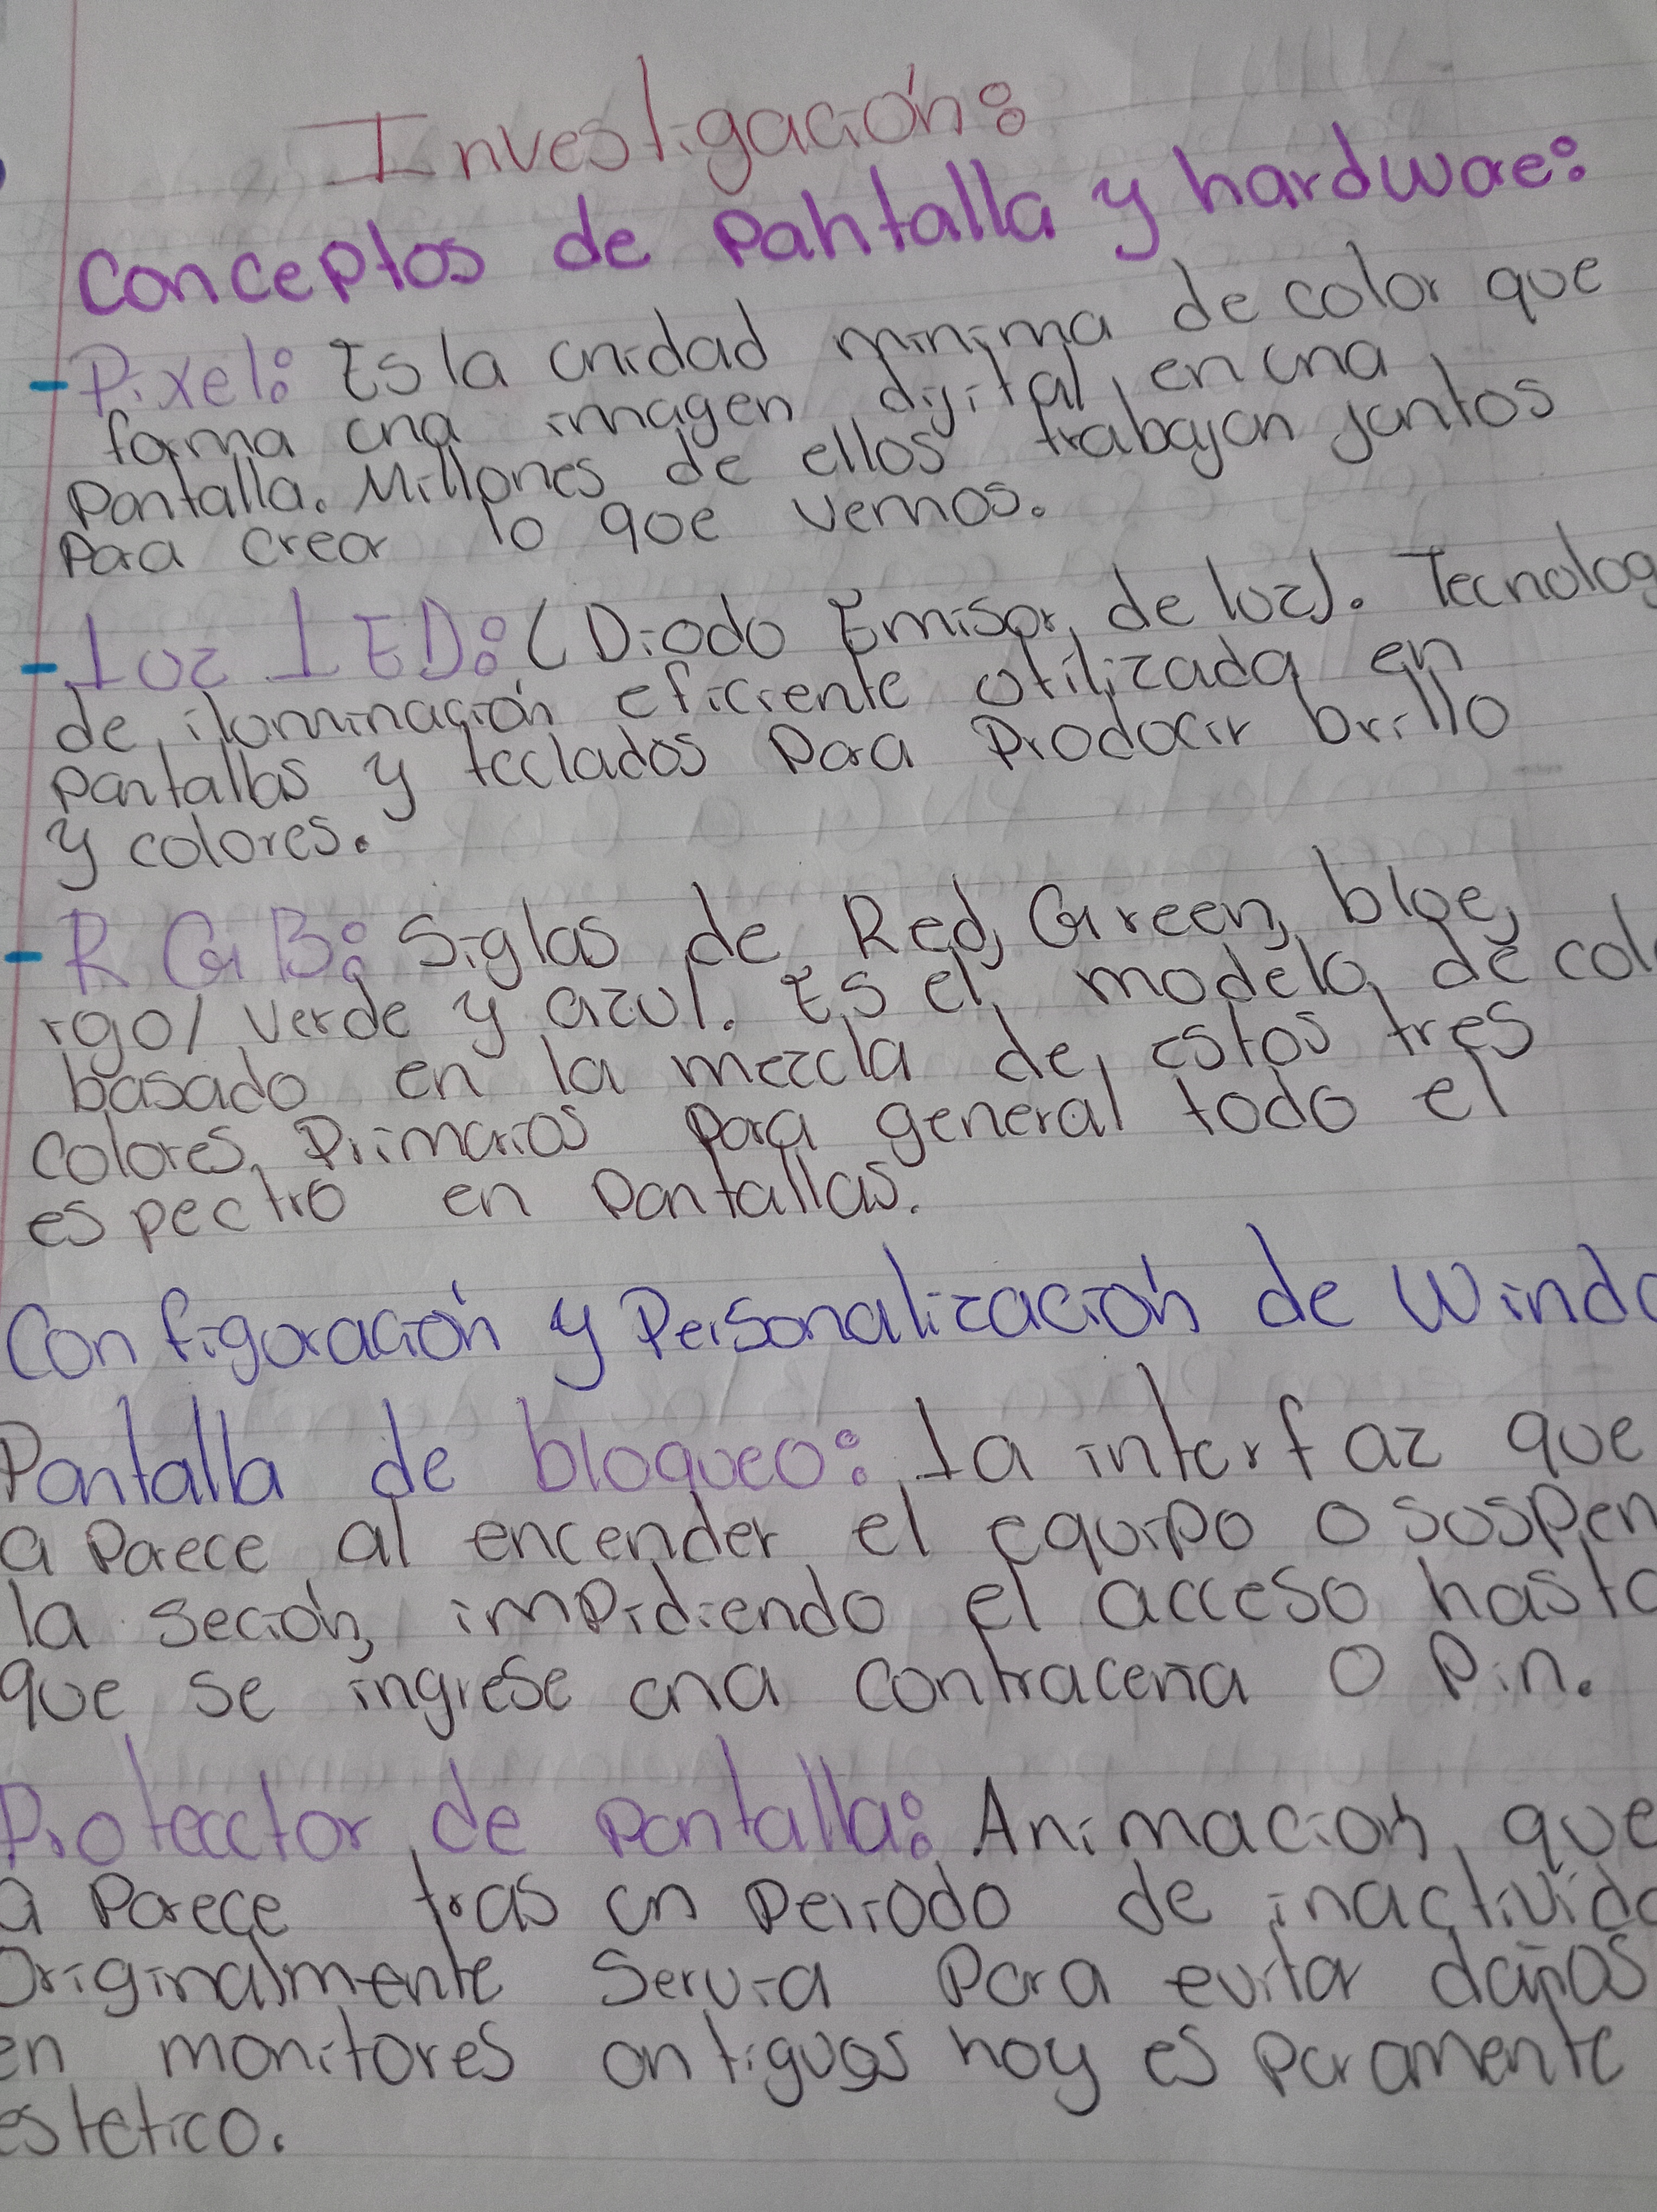 Investigación:
Conceptos de pantalla y hardware:
- Pixel: Es la unidad minima de color que
forma una imagen digital en una
pantalla. Millones de ellos trabajan juntos
para crear lo que vemos.
- Luz LED: (Diodo Emisor de luz). Tecnolog
de iluminación eficiente utilizada en
pantallas y teclados para producir brillo
y colores.
- RGB: Siglas de Red, Green, blue,
rgo/ verde y azul. Es el modelo de col
basado en la mezcla de estos tres
colores primarios para general todo el
espectro en pantallas.
Configuración y Personalización de Windo
Pantalla de bloqueo: La interfaz que
aparece al encender el equipo o suspen
la seción, impidiendo el acceso hasta
que se ingrese una contraceña o Pin.
Protecctor de pantalla: Animación que
aparece tras un periodo de inactivida
Originalmente servia para evitar daños
en monitores antiguos hoy es puramente
estetico.